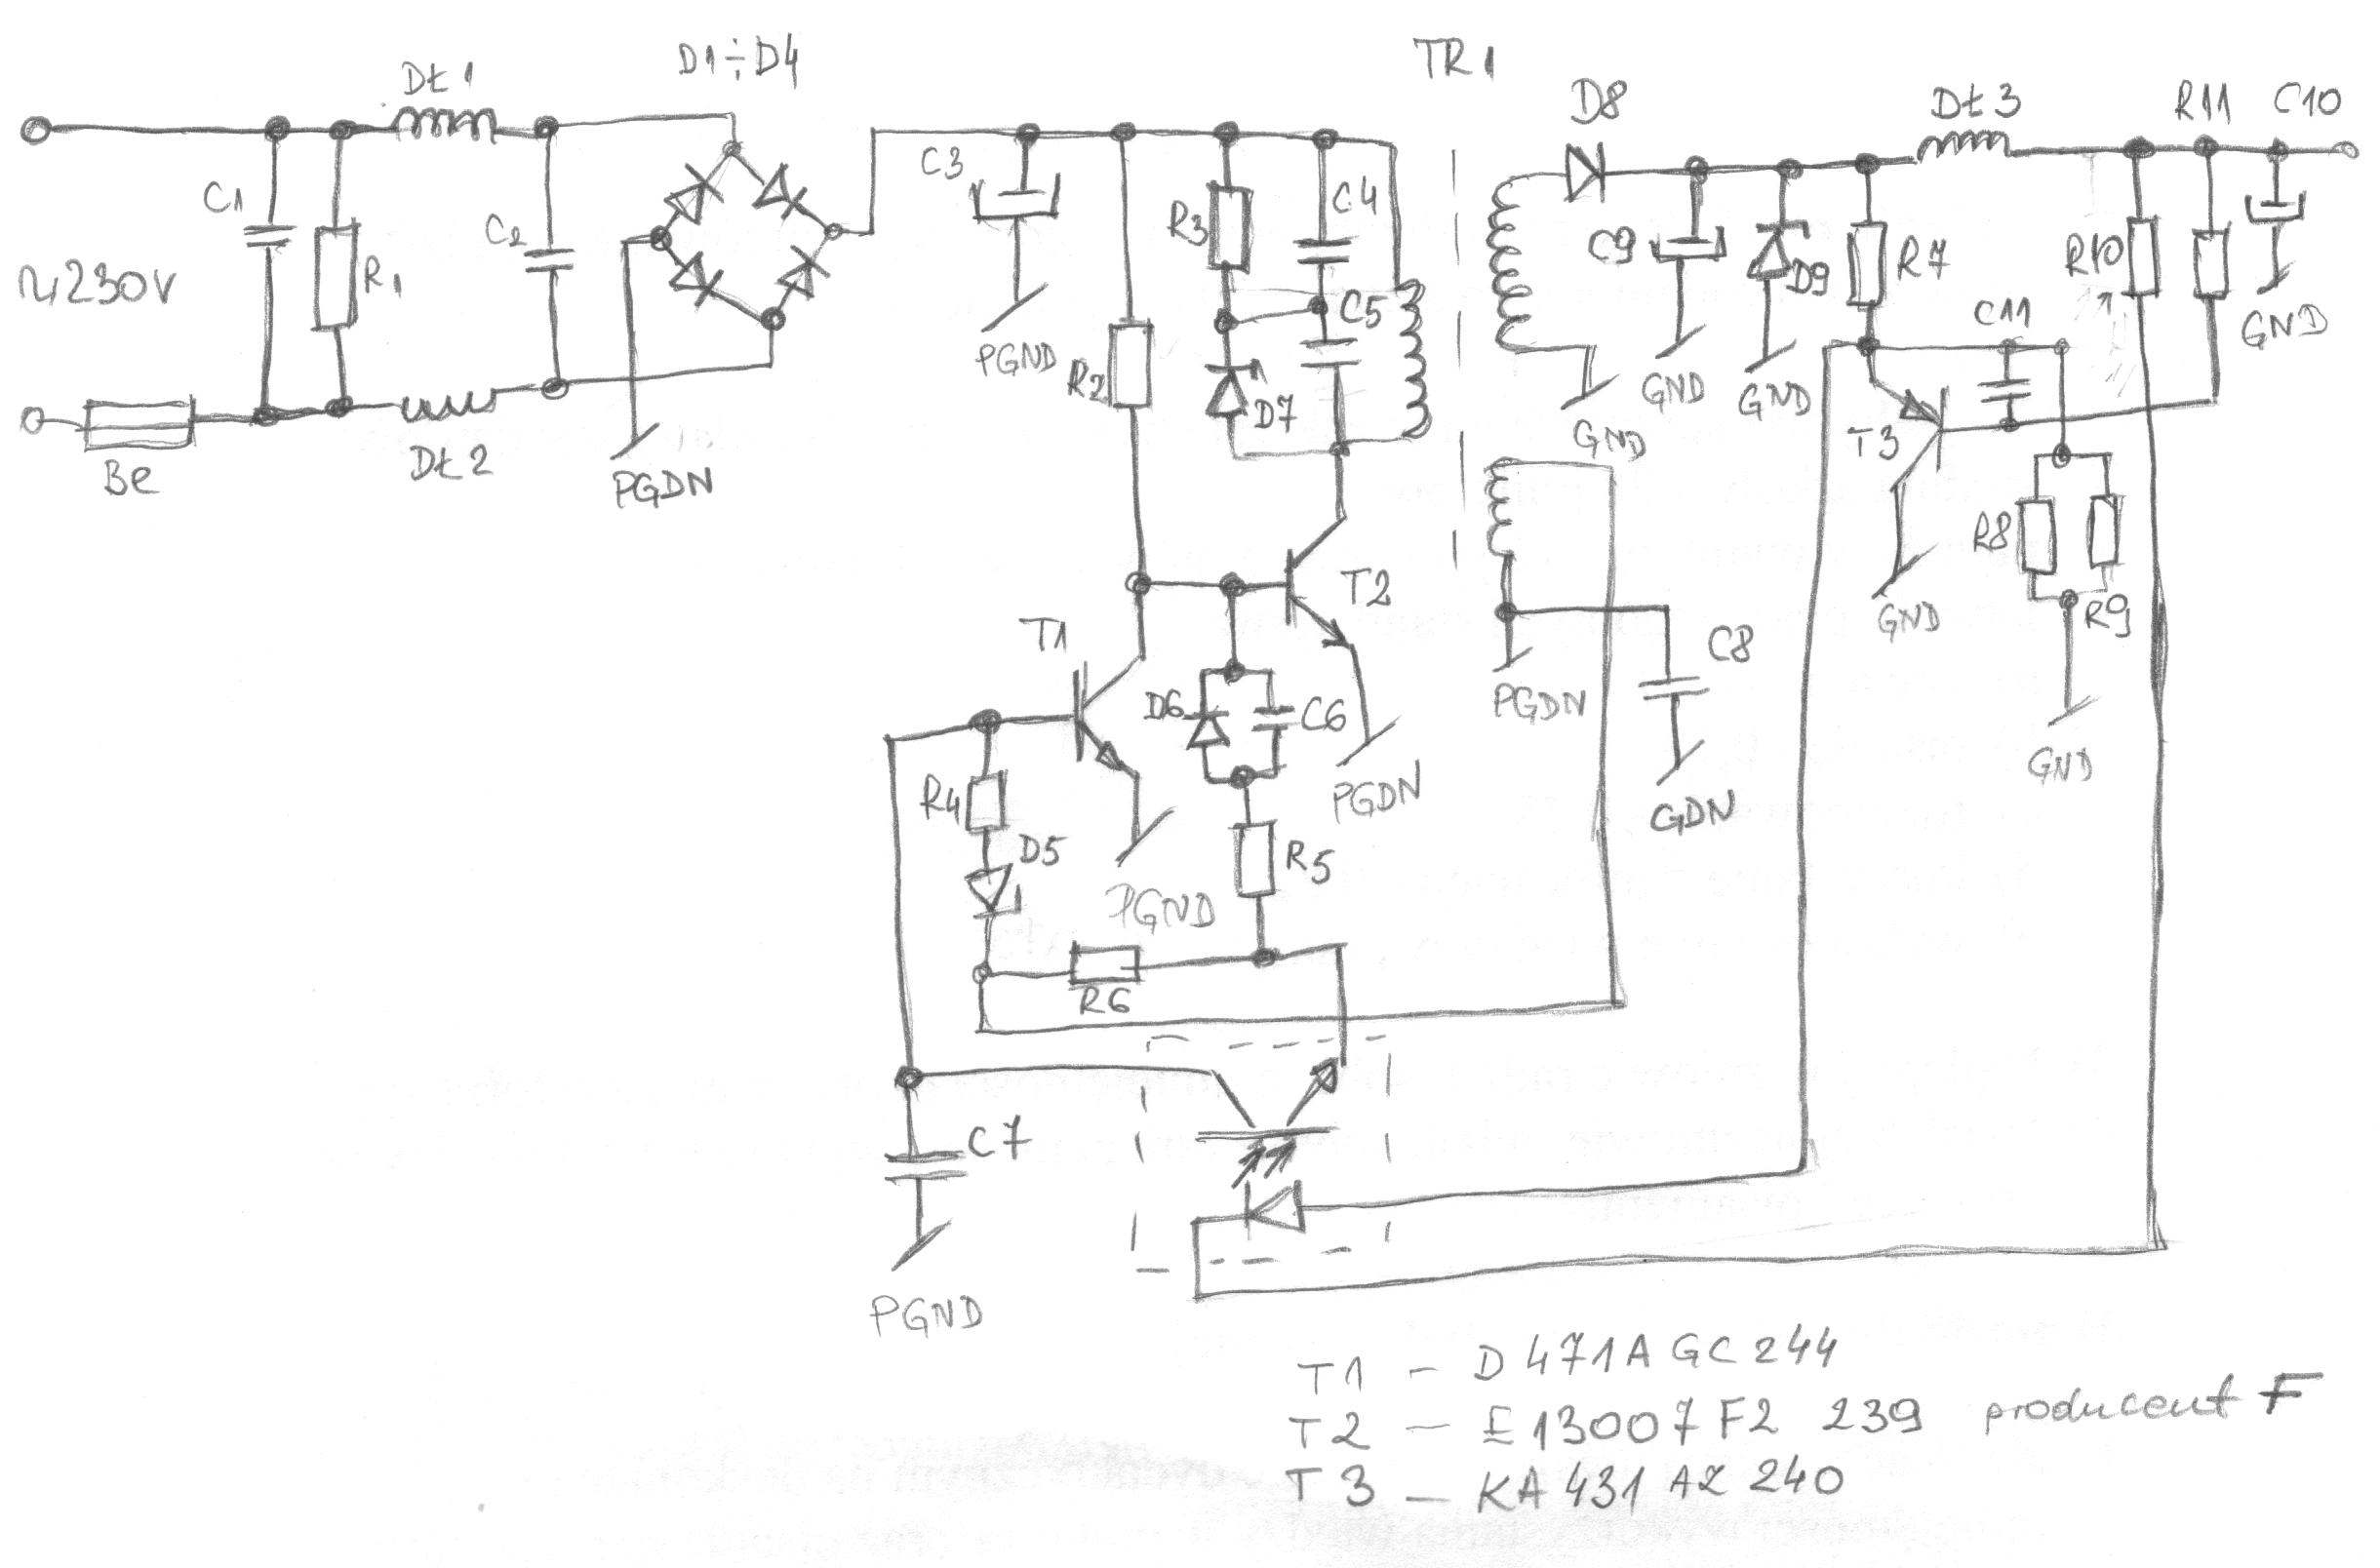 Dł1
D1÷D4
TR1
D8
Dł3
R11
C10
C1
R1
C2
C3
R3
C4
C9
D9
R7
R10
~230V
C5
C11
GND
PGND
R2
D7
GND
GND
GND
T3
Be
Dł2
PGDN
R8
R9
GND
T2
T1
C8
PGDN
D6
C6
PGDN
GDN
GND
R4
D5
R5
PGND
R6
C7
PGND
T1 - D471A GC244
T2 - E13007F2 239 producent F
T3 - KA431 AZ 240